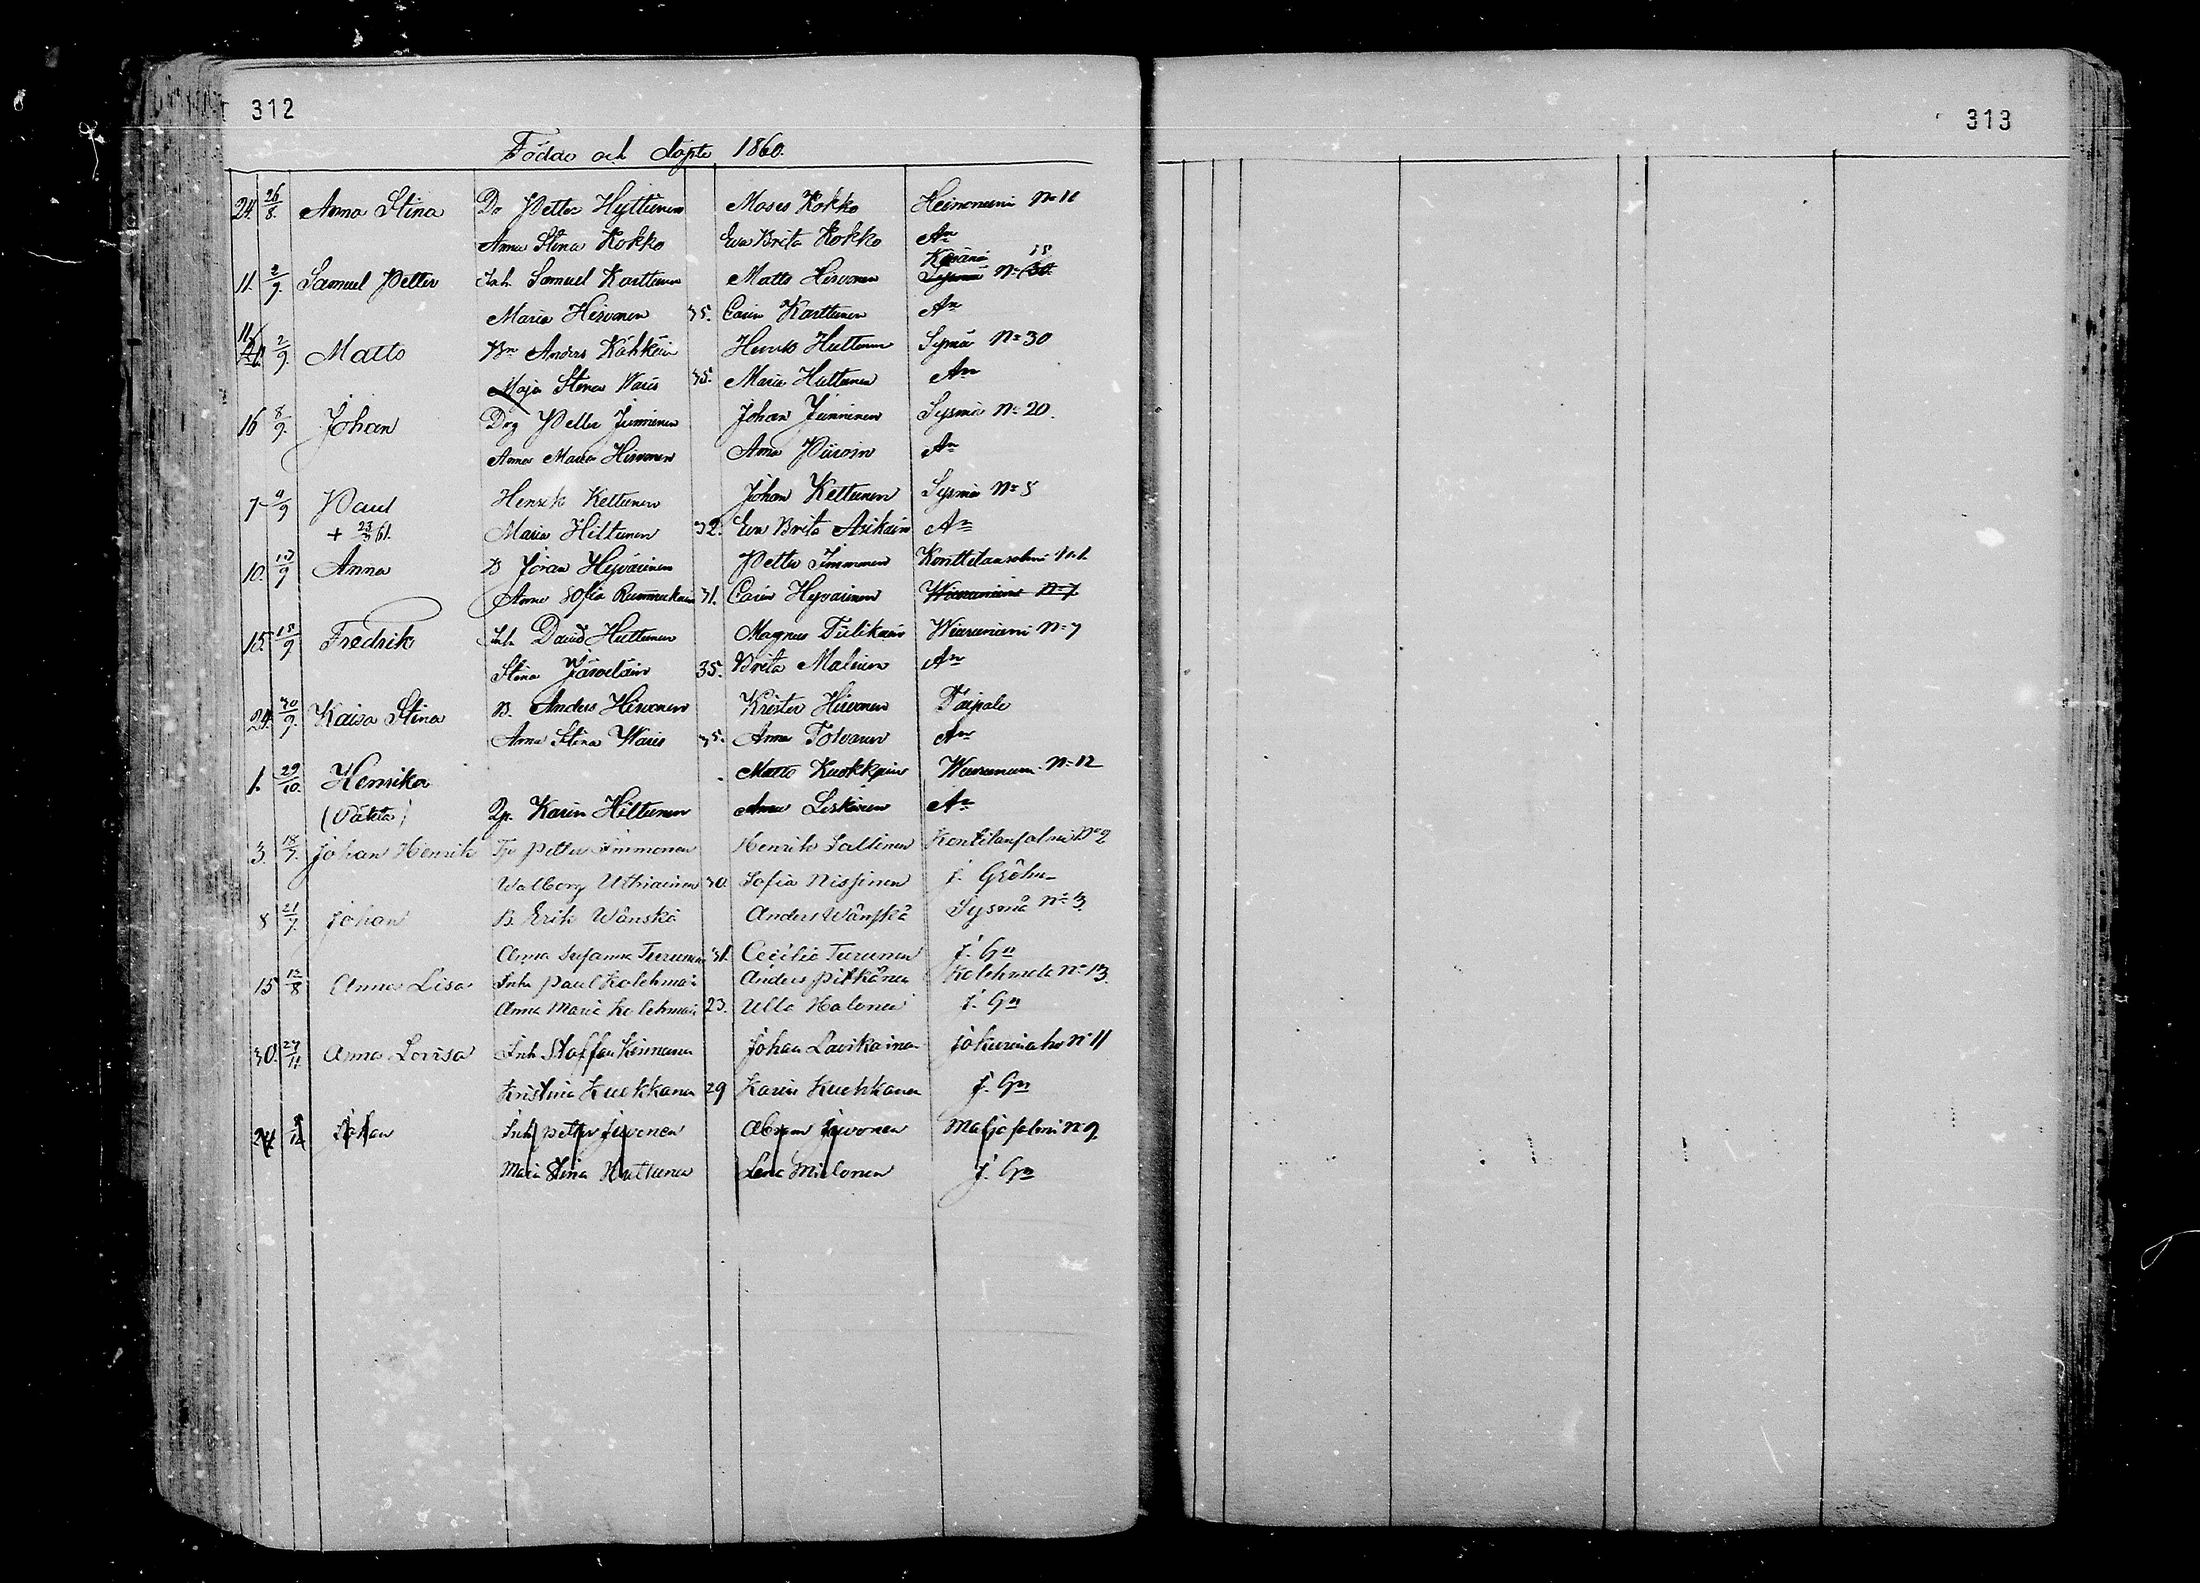 312
313
Födde och döpte 1860.
24. 26/8. Anna Stina Do Petter Hyttinen Moses Kokko Heinoniemi No 11
Anna Stina Kokko Ewa Brita Kokko An
15
11. 2/9. Samuel Petter Inh. Samuel Karttunen Matts Hirvonen Sysmä No 30.
Maria Hirvonen 35. Carin Karttunen An
11/
2/9. Matts Bn Anders Kähköin Henrik Huttunen Sysmä No 30
Maja Stina Waris 35. Maria Huttunen An
16 8/9. Johan Drg Petter Junninen Johan Junninen Sysmä No 20.
Anna Maria Hirvonen Anna Piiroin An
7 9/9 Paul Henrik Kettunen Johan Kettunen Sysmä No 5
+ 23/3 61. Maria Hiltunen 32. Ewa Brita Asikain An
10. 13/9 Anna B Jöran Hyvärinen Petter Immonen Konttilansalmi No 1.
Anna Sofia Rummukain 31. Carin Hyvärinen Wiisuniemi No 7
15. 15/9 Fredrik Inh. David Huttunen Magnus Tiilikain Wiisuniemi No 7
Stina Järveläin 35. Brita Malinen An
24. 30/9. Kaisa Stina B. Anders Hirvonen Krister Hirvonen Taipale
Anna Stina Waris 35. Anna Tolvanen An
1. 29/10. Henrika Matts Kuokkain No 12
(Oäkta) Qp. Karin Hiltunen Anna Leskinen An
3. 18/7. Johan Henrik Petter Immonen Henrik Saltinen Kontilansalmi No 2
Walborg Uthriainen 30. Sofia Nissinen f. Gröhn
8 21/7. Johan B. Erik Wänskä Anders Wänskä Sysmä No 3.
Anna Susanna Turunen 31. Cecilia Turunen f. Gn
15 12/8 Anna Lisa Inh Paul Kolehmai Anders Pitkänen Kolehmala No 13.
Anna Maria Kolehmai 23. Ulla Halonen f. Gn
30. 27/11. Anna Lovisa Inh Staffan Kinnunen Johan Lavikainen Jokurinaho No 11
Kristina Kuokkanen 29 Karin Kuokkanen f. Gn
24 Johan Inh Petter Juvonen Abram Juvonen Maljasalmi No 9.
Maria Stina Huttunen Lena Miilonen f. Gn